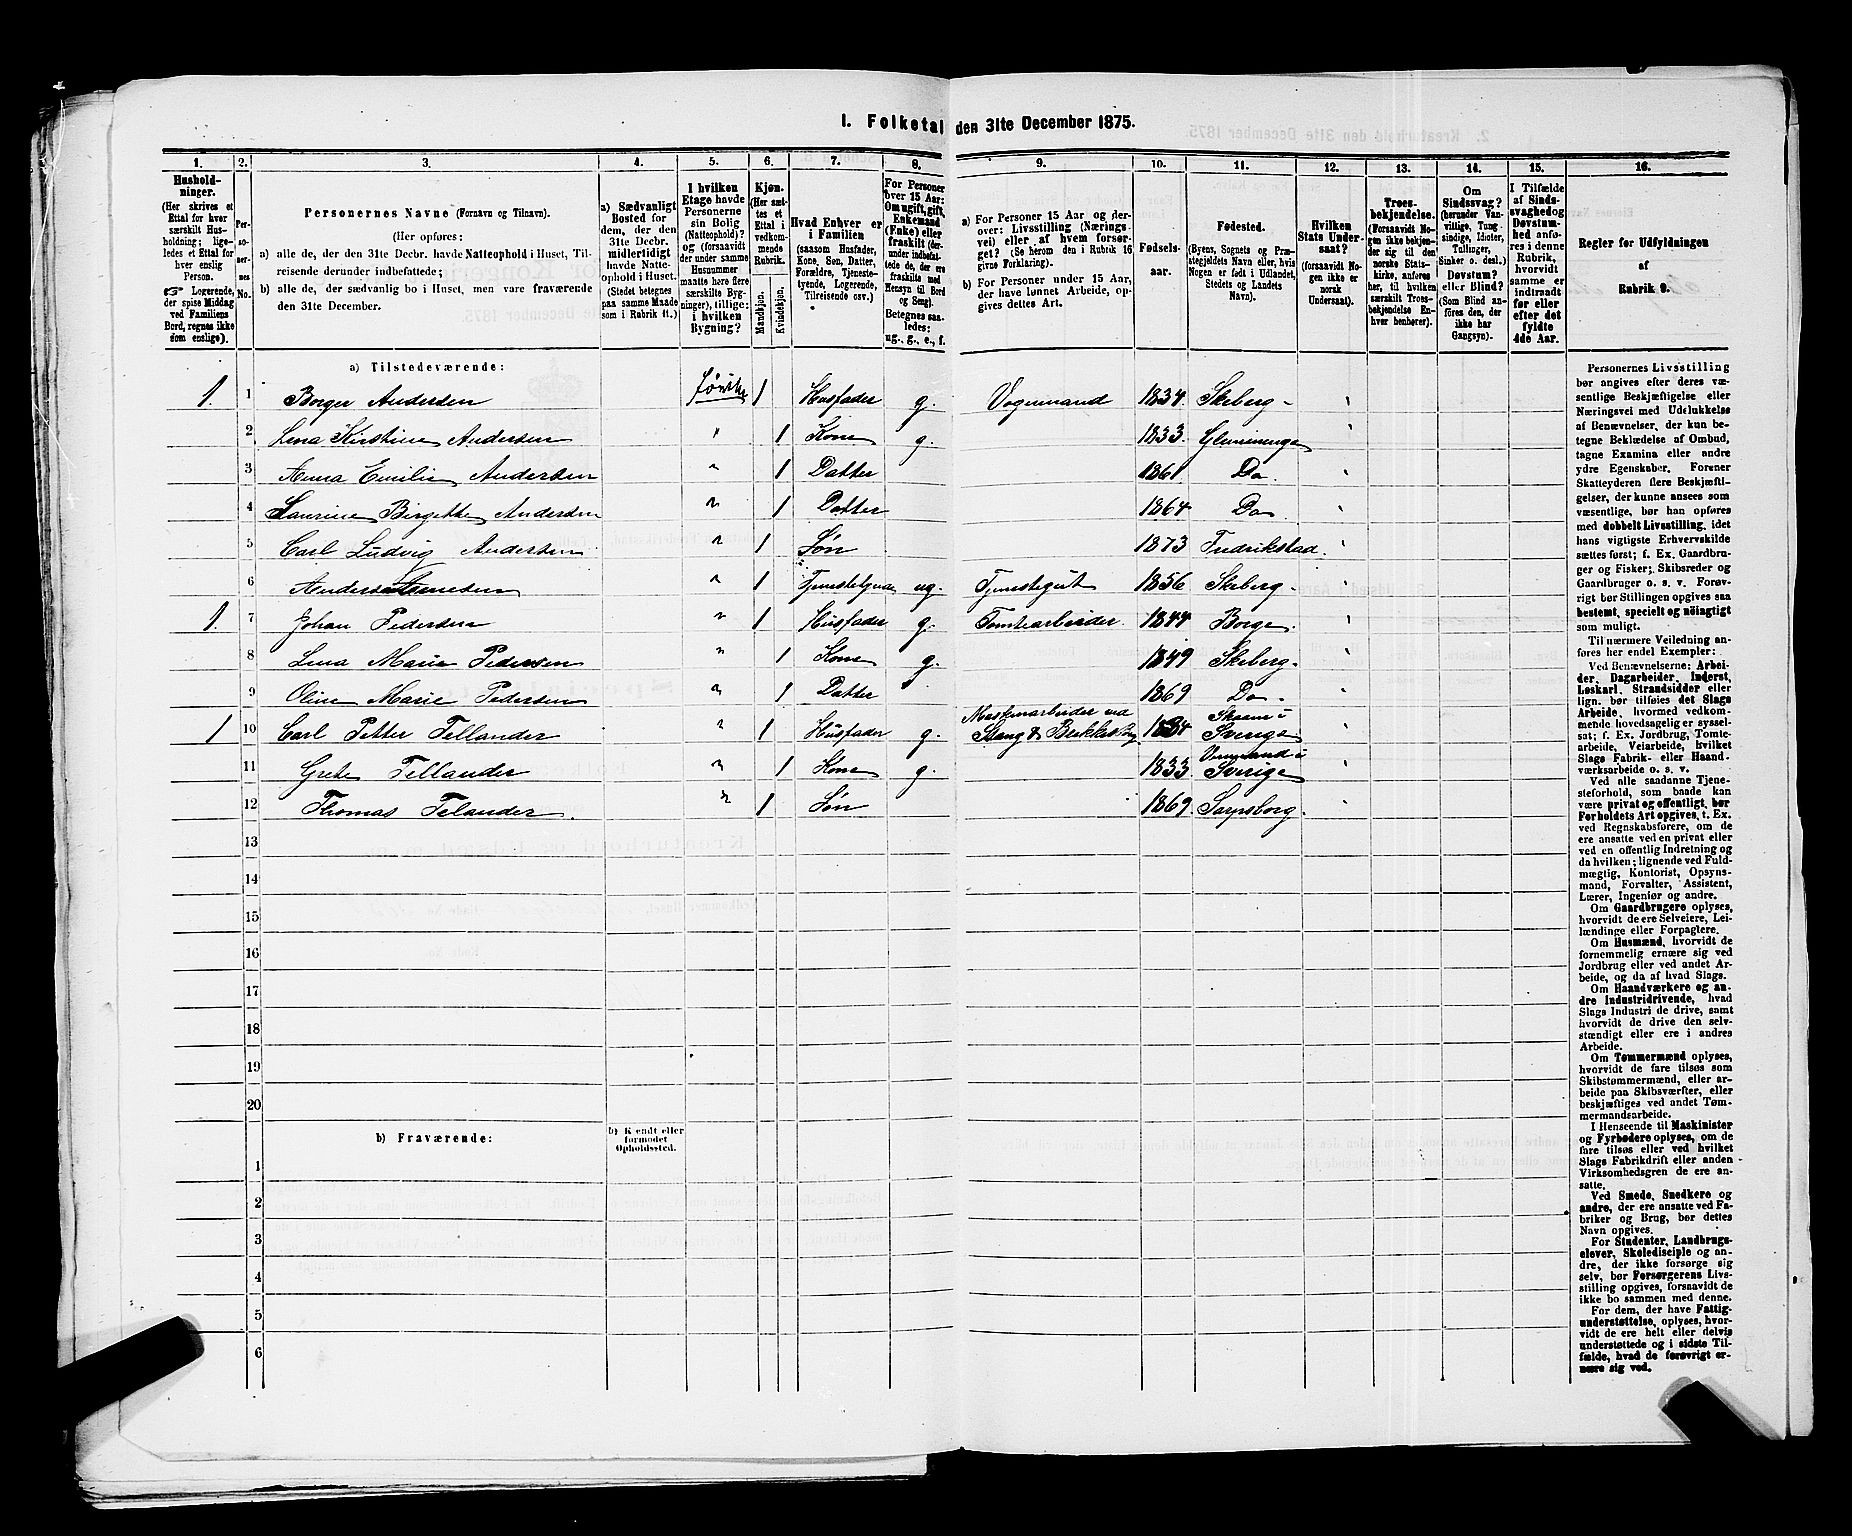 I. Folketal den 31te December 1875.
1. 2. 3. 4. 5. 6. 7. 8. 9. 10. 11. 12. 13. 14. 15. 16.
Hushold-
ninger.
(Her skrives et
Ettal for hver
særskilt Hus-
holdning; lige-
ledes et Ettal for
hver enslig
Person.
☞ Logerende,
der spise Middag
ved Familiens
Bord, regnes ikke
som enslige).
Per-
so-
ner-
nes
No.
Personernes Navne (Fornavn og Tilnavn).
(Her opføres:
a) alle de, der den 31te Decbr. havde Natteophold i Huset, Til-
reisende derunder indbefattede;
b) alle de, der sædvanlig bo i Huset, men vare fraværende
den 31te December.
a) Sædvanligt
Bosted for
dem, der den
31te Decbr.
midlertidigt
havde Natte-
ophold i Huset.
(Stedet betegnes
paa samme Maade
som i Rubrik 11.)
I hvilken
Etage havde
Personerne
sin Bolig
(Natteophold)?
og (forsaavidt
der under samme
Husnummer
maatte høre flere
særskilte Byg-
ninger), tillige:
i hvilken
Bygning?
Kjøn.
(Her sæt-
tes et
Ettal i
vedkom-
mende
Rubrik.
Mandkjøn.
Kvindekjøn.
Hvad Enhver er
i Familien
(saasom Husfader,
Kone, Søn, Datter,
Forældre, Tjeneste-
tyende, Logerende,
Tilreisende osv.)
For Personer
over 15 Aar:
Om ugift, gift,
Enkemand
(Enke) eller
fraskilt (der-
under indbefat-
tede de, der ere
fraskilte med
Hensyn til Bord
og Seng).
Betegnes saa-
ledes:
ug., g., e., f.
a) For Personer 15 Aar og der-
over: Livsstilling (Nærings-
vei) eller af hvem forsør-
get? (Se herom den i Rubrik 16
givne Forklaring).
b) For Personer under 15 Aar,
der have lønnet Arbeide, op-
gives dettes Art.
Fødsels-
aar.
Fødested.
(Byens, Sognets og Præ-
stegjeldets Navn eller, hvis
Nogen er født i Udlandet,
Stedets og Landets
Navn).
Hvilken
Stats Under-
saat?
(forsaavidt No-
gen ikke er
norsk
Undersaat).
Troes-
bekjendelse.
(Forsaavidt No-
gen ikke bekjen-
der sig til den
norske Stats-
kirke, anføres
her, til hvilken
særskilt Troes-
bekjendelse En-
hver henhører).
Om
Sindssvag?
(herunder Van-
vittige, Tung-
sindige, Idioter,
Tullinger,
Sinker o. desl.)
Døvstum?
eller Blind?
(Som Blind an-
føres den, der
ikke har
Gangsyn).
I Tilfælde
af Sinds-
svaghed og
Døvstum-
hed anfø-
res i denne
Rubrik,
hvorvidt
samme er
indtraadt
før eller
efter det
fyldte
4de Aar.
Regler for Udfyldningen
af
Rubrik 9.
a) Tilstedeværende:
1. 1 Borger Andersen 1 Husfader g. Vognmand 1834. Skeberg -
2 Lena Kirstine Andersen " 1 Kone g. 1833. Glemminge
3 Anna Emilie Andersen " 1 Datter 1861 Do.
4 Laurine Birgitte Andersen " 1 Datter 1864 Do.
5 Carl Ludvig Andersen " 1 Søn 1873 Fredrikstad.
6 " 1 ug. Tjenestegut 1856 Skeberg -
1. 7 Johan Pedersen " 1 Husfader g. Tomtearbeider. 1844 Borge.
8 Lena Marie Pedersen " 1 Kone g. 1849 Skeberg -
9 Oline Marie Pedersen " 1 Datter 1869 Do -
1 10 Carl Petter Tellander " 1 Husfader g. Maskinarbeider ved Sverige
11 Grete Tellander " 1 Kone g. 1833 Sverige
12 Thomas Telander " 1 Søn 1869. Sarpsborg.
13
14
15
16
17
18
19
20
b) Fraværende:
b) Kjendt eller
formodet
Opholdssted.
1
2
3
4
5
6
Personernes Livsstilling
bør angives efter deres væ-
sentlige Beskjæftigelse eller
Næringsvei med Udelukkelse
af Benævnelser, der kun be-
tegne Beklædelse af Ombud,
tagne Examina eller andre
ydre Egenskaber. Forener
Skatteyderen flere Beskjæfti-
gelser, der kunne ansees som
væsentlige, bør han opføres
med dobbelt Livsstilling, idet
hans vigtigste Erhvervskilde
sættes først; f. Ex. Gaardbru-
ger og Fisker; Skibsreder og
Gaardbruger o. s. v. Forøv-
rigt bør Stillingen opgives saa
bestemt, specielt og nöiagtigt
som muligt.
Til nærmere Veiledning an-
føres her endel Exempler:
Ved Benævnelserne: Arbei-
der, Dagarbeider, Inderst,
Løskarl, Strandsidder eller
lign. bør tilføies det Slags
Arbeide, hvormed vedkom-
mende hovedsagelig er syssel-
sat; f. Ex. Jordbrug, Tomte-
arbeide, Veiarbeide, hvilket
Slags Fabrik- eller Haand-
værksarbeide o. s. v.
Ved alle saadanne Tjene-
steforhold, som baade kan
være privat og offentligt, bør
Forholdets Art opgives, t. Ex.
ved Regnskabsførere, om de
ere ansatte ved en privat eller
ved en offentlig Indretning og
da hvilken; lignende ved Fuld-
mægtig, Kontorist, Opsyns-
mand, Forvalter, Assistent,
Lærer, Ingeniør og andre.
Om Gaardbrugere oplyses,
hvorvidt de ere Selveiere, Lei-
lændinge eller Forpagtere.
Om Husmænd, hvorvidt de
fornemmelig ernære sig ved
Jordbrug eller ved andet Ar-
beide, og da af hvad Slags.
Om Haandværkere og an-
dre Industridrivende, hvad
Slags Industri de drive, samt
hvorvidt de drive den selv-
stændigt eller ere i andres
Arbeide.
Om Tømmermænd oplyses,
hvorvidt de fare tilsøs som
Skibstømmermænd, eller ar-
beide paa Skibsværfter, eller
beskjæftiges ved andet Tøm-
mermandsarbeide.
I Henseende til Maskinister
og Fyrbødere oplyses, om de
fare tilsøs eller ved hvilket
Slags Fabrikdrift eller anden
Virksomhedsgren de ere an-
satte.
Ved Smede, Snedkere og
andre, der ere ansatte ved Fa-
briker og Brug, bør dettes
Navn opgives.
For Studenter, Landbrugs-
elever, Skoledisciple og an-
dre, der ikke forsørge sig
selv, bør Forsørgerens Livs-
stilling opgives, forsaavidt de
ikke bo sammen med denne.
For dem, der have Fattig-
understøttelse, oplyses, hvor-
vidt de ere helt eller delvis
understøttede og i sidste Til-
fælde, hvad de forøvrigt er-
nære sig ved.